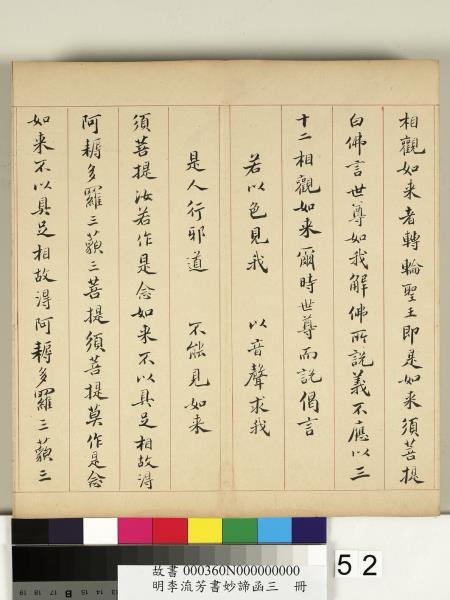 相觀如來者轉輪聖王即是如來須菩提
白佛言世尊如我解佛所說義不應以三
十二相觀如来爾時世尊而說偈言
若以色見我 以音聲求我
是人行邪道 不能見如来
須菩提汝若作是念如来不以具足相故得
阿耨多羅三藐三菩提須菩提莫作是念
如来不以具足相故得阿耨多羅三藐三
52
故書 000360N000000000
明李流芳書妙諦函三 冊